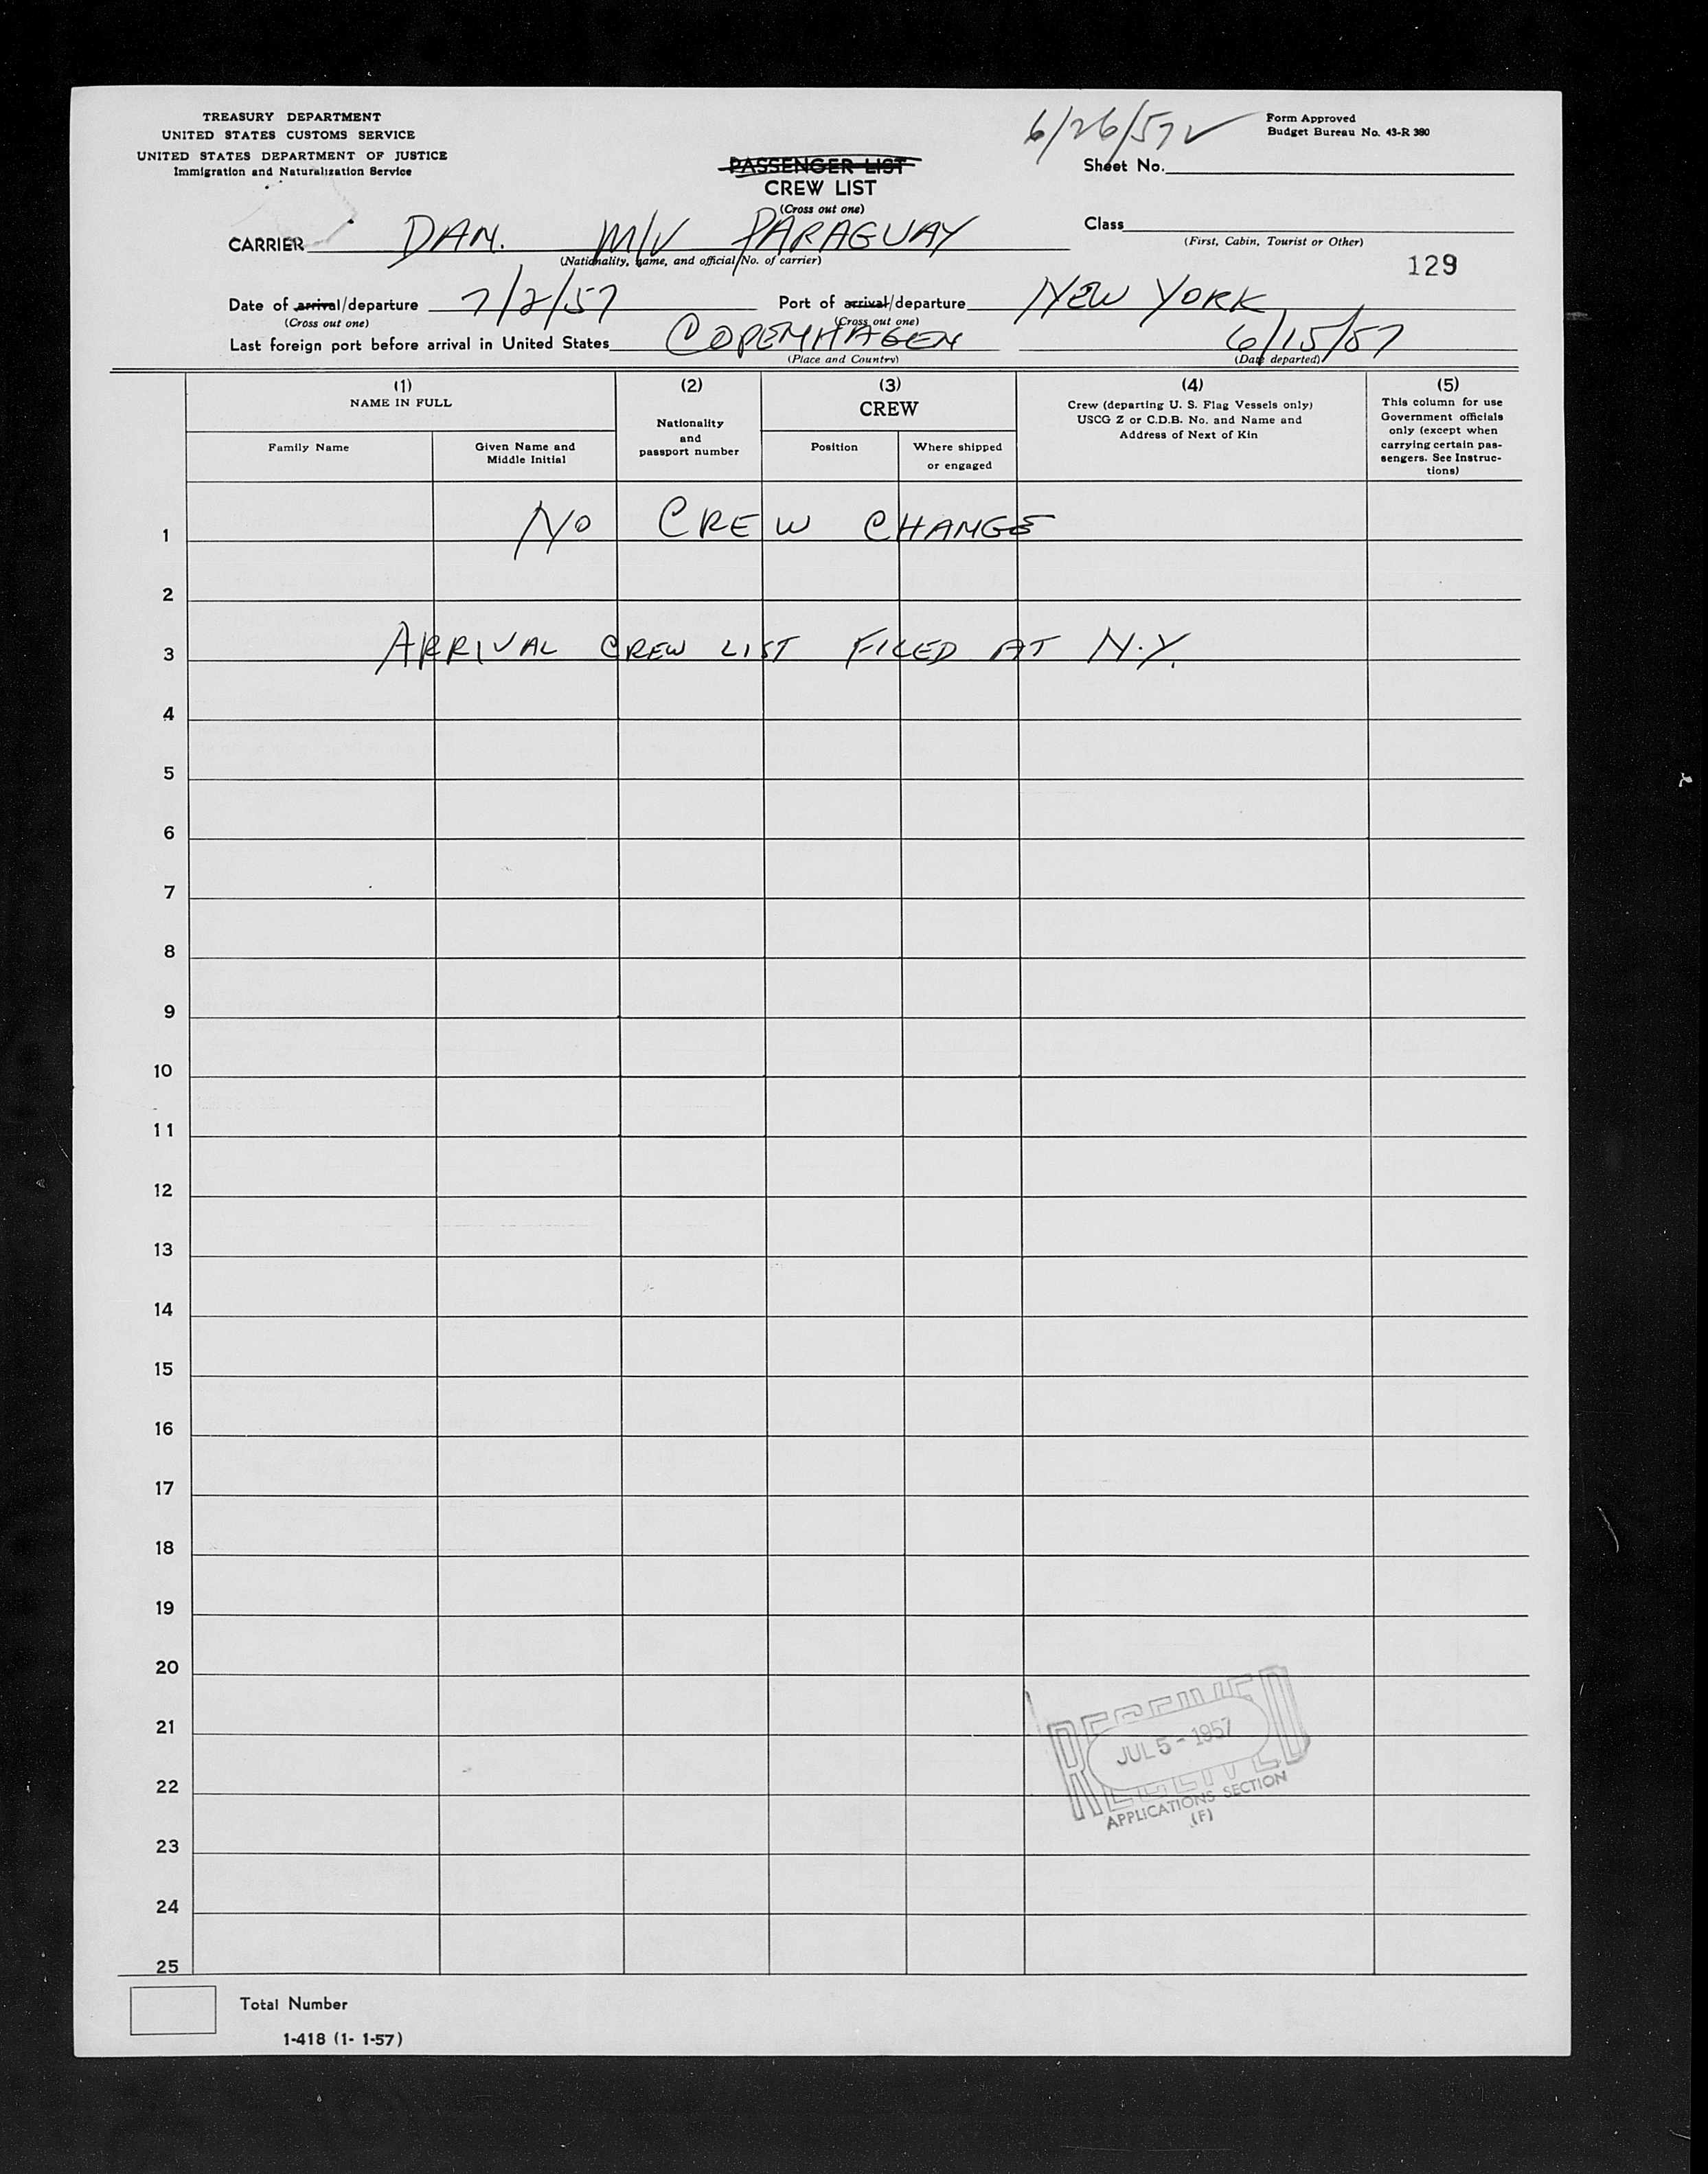 TREASURY DEPARTMENT
UNITED STATES CUSTOMS SERVICE
UNITED STATES DEPARTMENT OF JUSTICE
Immigration and Naturalization Service
6/26/57 ✓
Form Approved
Budget Bureau No. 43-R 380
PASSENGER LIST
CREW LIST
(Cross out one)
Sheet No.
CARRIER DAN. M/V PARAGUAY
(Nationality, name, and official No. of carrier)
Class
(First, Cabin, Tourist or Other)
129
Date of arrival/departure 7/2/57
(Cross out one)
Port of arrival/departure NEW YORK
(Cross out one)
Last foreign port before arrival in United States COPENHAGEN 6/15/57
(Place and Country) (Date departed)
(1)
NAME IN FULL
Family Name
Given Name and
Middle Initial
(2)
Nationality
and
passport number
(3)
CREW
Position
Where shipped
or engaged
(4)
Crew (departing U. S. Flag Vessels only)
USCG Z or C.D.B. No. and Name and
Address of Next of Kin
(5)
This column for use
Government officials
only (except when
carrying certain pas-
sengers. See Instruc-
tions)
1 NO CREW CHANGE
2
3 ARRIVAL CREW LIST FILED AT N.Y.
4
5
6
7
8
9
10
11
12
13
14
15
16
17
18
19
20
21
22
23
24
25
RECEIVED
JUL 5 - 1957
RECEIVED
APPLICATIONS SECTION
(F)
Total Number
1-418 (1- 1-57)